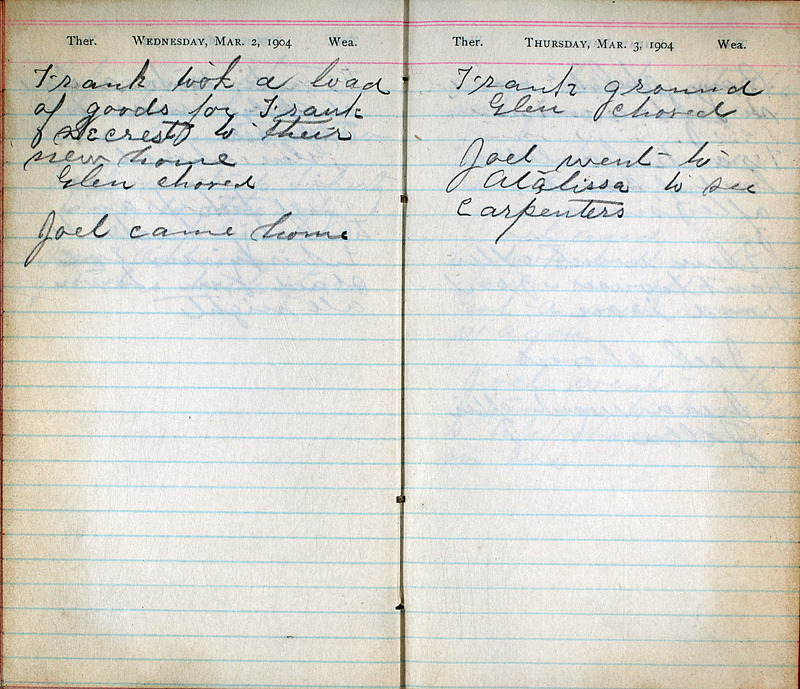 Ther. WEDNESDAY, MAR. 2, 1904 Wea.
Frank took a load
of goods for Frank
Secrest to their
new home
Glen chored
Joel came home
Ther. THURSDAY, MAR. 3, 1904 Wea.
Frank ground
Glen chored
Joel went to
Atalissa to see
Carpenters